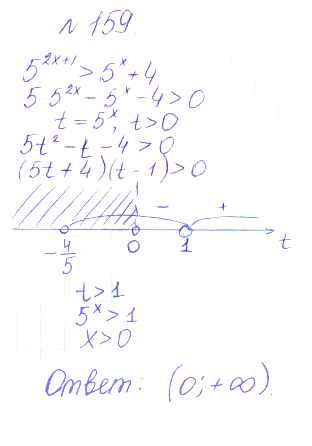 № 159.
5^{2x+1} > 5^x + 4
5 5^{2x} - 5^x - 4 > 0
t = 5^x, t > 0
5t² - t - 4 > 0
(5t + 4)(t - 1) > 0
- +
-4/5 0 1 t
t > 1
5^x > 1
x > 0
Ответ: (0; +∞).